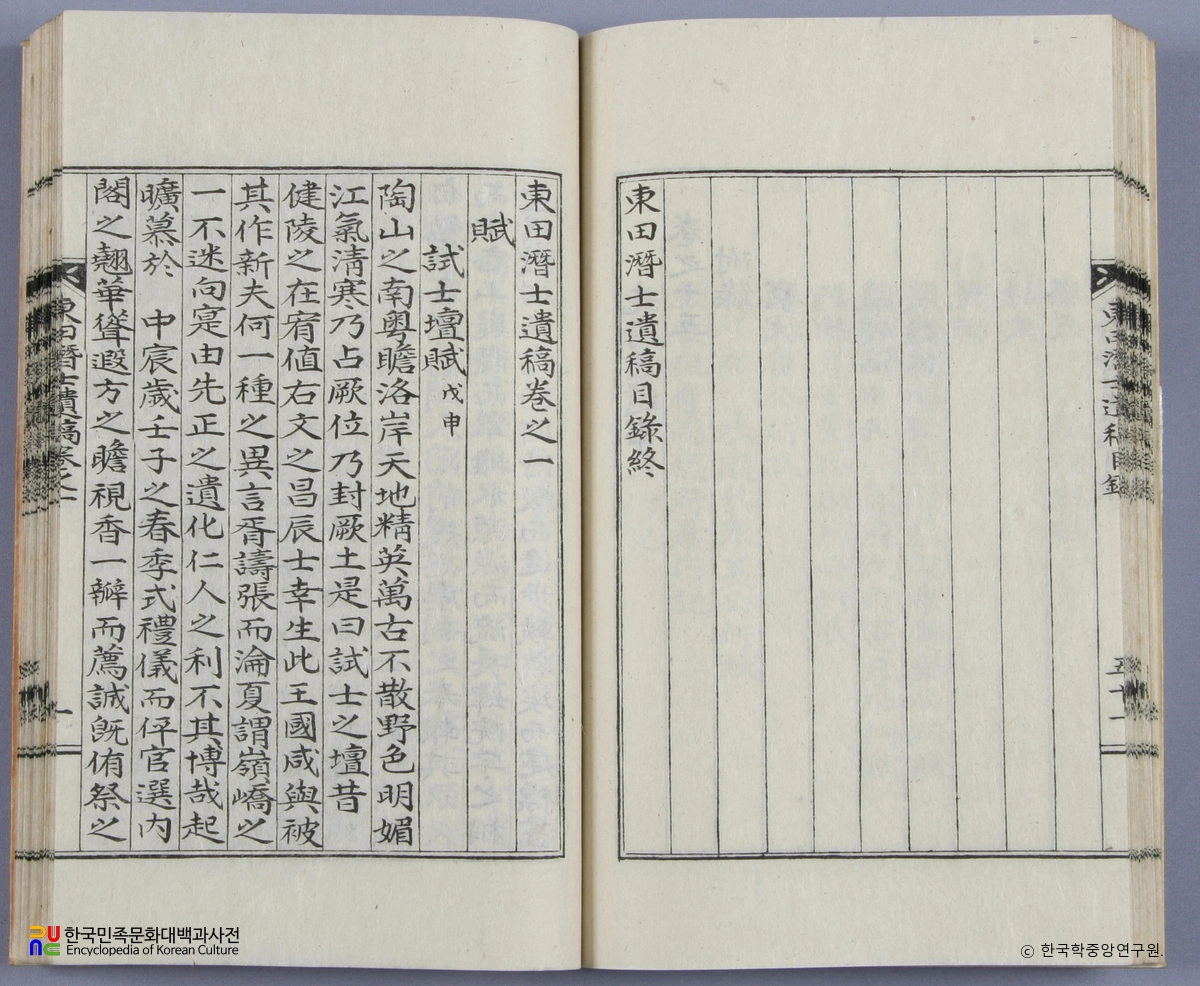 東田潛士遺稿目錄終
東田潛士遺稿卷之一
賦
試士壇賦 戊申
陶山之南粤瞻洛岸天地精英萬古不散野色明媚
江氣淸寒乃占厥位乃封厥土是曰試士之壇昔
健陵之在宥値右文之昌辰士幸生此王國咸與被
其作新夫何一種之異言胥譸張而淪夏謂嶺嶠之
一不迷向寔由先正之遺化仁人之利不其博哉起
曠慕於 中宸歲壬子之春季式禮儀而伻官選內
閣之翹華聳遐方之瞻視香一瓣而薦誠旣侑祭之
東田潛士遺稿卷之一
一
한국민족문화대백과사전
Encyclopedia of Korean Culture
ⓒ 한국학중앙연구원.